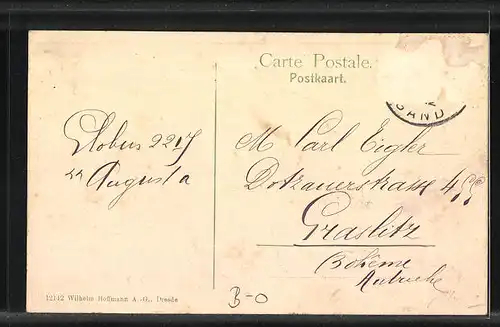 Carte Postale.
Postkaart.
SAND
Globus 2217
Augusta
M Carl Eigler
Dotzauerstrasse
Graslitz
Bohême
Autriche
12142 Wilhelm Hoffmann A.-G., Dresde
B-0